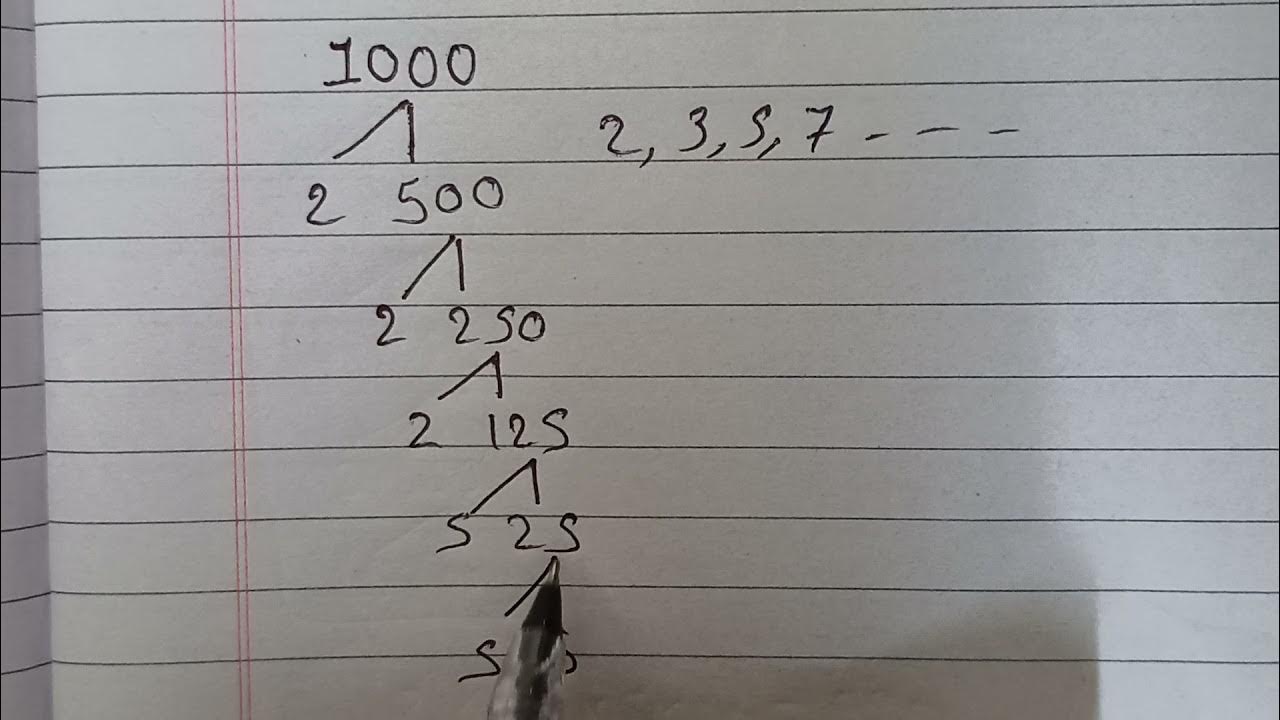 1000
2, 3, 5, 7 - - -
2 500
2 250
2 125
5 25
5